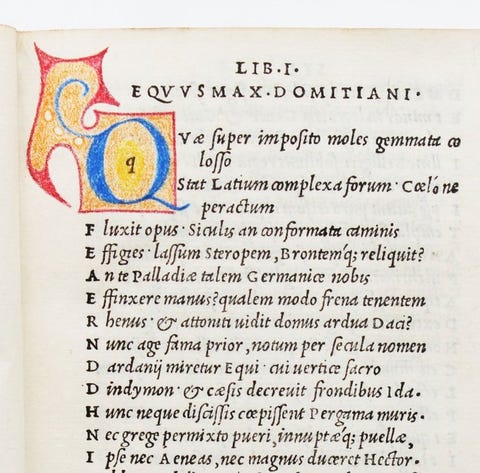 LIB·I·
EQVVS MAX·DOMITIANI·
Qq Væ super imposito moles gemmata co
losso
Stat Latium complexa forum· Cœlo ne
peractum
F luxit opus· Siculis an conformata caminis
E ffigies· lassum Steropem, Brontemq; reliquit?
A nte Palladiæ talem Germanice nobis
E ffinxere manus? qualem modo frena tenentem
R henus· & attoniti uidit domus ardua Daci?
N unc age fama prior, notum per secula nomen
D ardanij miretur Equi· cui vertice sacro
D indymon· & cæsis decreuit frondibus Ida·
H unc neque discissis cœpissent Pergama muris·
N ec grege permixto pueri, innuptæq; puellæ,
I pse nec Aeneas, nec magnus duceret Hector·